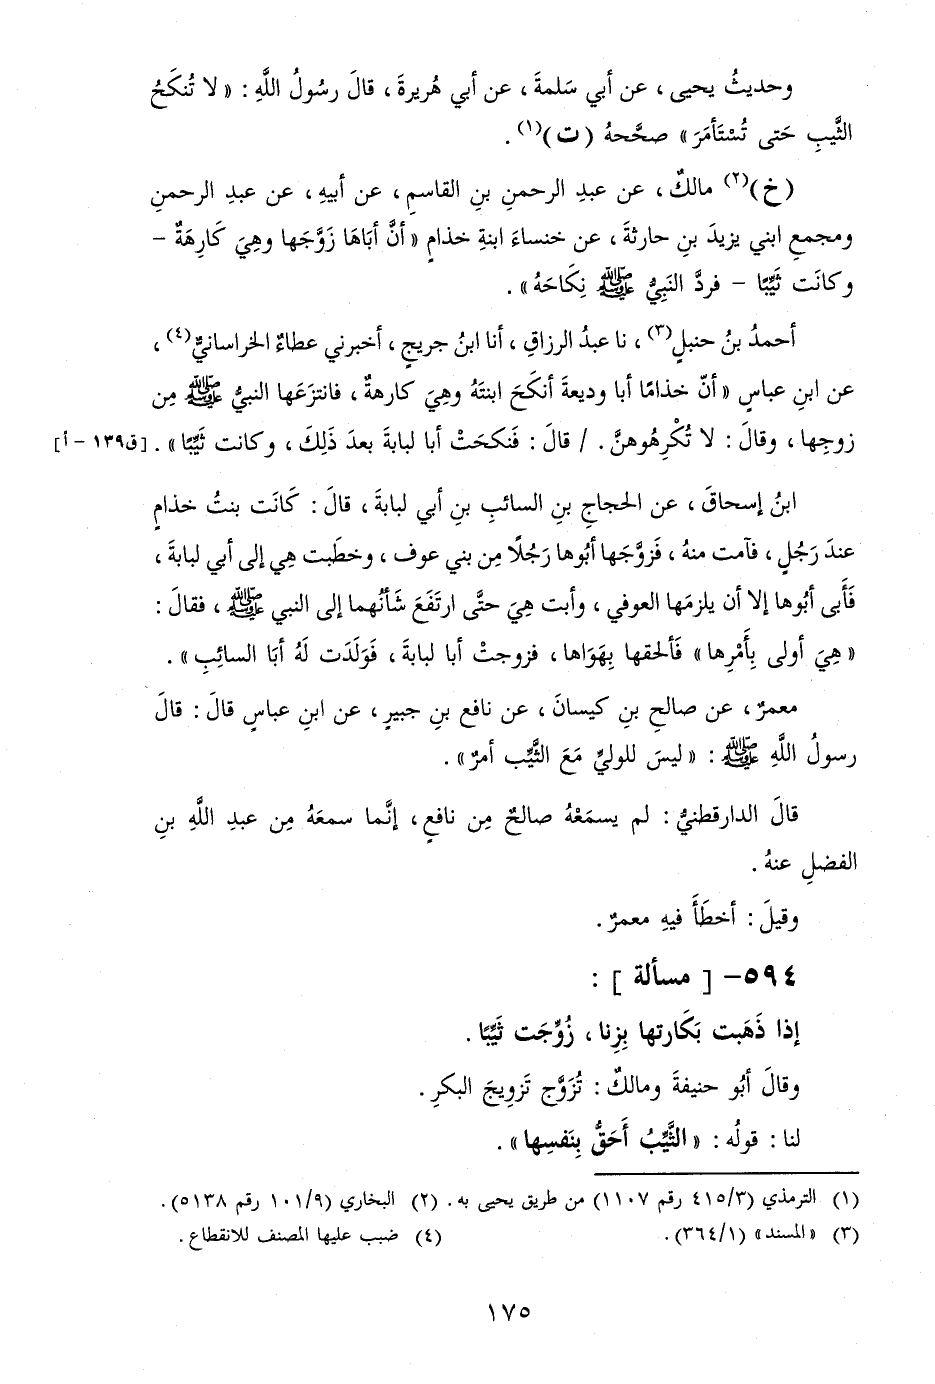 وحديثُ يحيى ، عن أبي سَلمةَ ، عن أبي هُريرةَ ، قالَ رسُولُ اللَّهِ : « لا تُنكَحُ
الثَّيبِ حَتى تُسْتَأمَرَ » صحَّحهُ ( ت )(١) .
(خ)(٢) مالكٌ ، عن عبدِ الرحمنِ بنِ القاسمِ ، عن أبيهِ ، عن عبدِ الرحمنِ
ومجمعِ ابني يزيدَ بنِ حارثةَ ، عن خنساءَ ابنةِ خذامٍ « أنَّ أبَاهَا زَوَّجَها وهِيَ كَارِهَةٌ –
وكانَت ثَيِّبًا – فردَّ النَبِيُّ ﷺ نِكَاحَهُ » .
أحمدُ بنُ حنبلٍ(٣) ، نا عبدُ الرزاقِ ، أنا ابنُ جريجٍ ، أخبرني عطاءٌ الخراسانيُّ(٤) ،
عن ابنِ عباسٍ « أنّ خذامًا أبا وديعةَ أنكَحَ ابنتَهُ وهِيَ كارهةٌ ، فانتزَعَها النبيُّ ﷺ مِن
زوجِها ، وقالَ : لا تُكْرِهُوهنَّ . / قالَ : فَنكحَتْ أبا لبابةَ بعدَ ذَلِكَ ، وكانت ثَيِّبًا » . [ق١٣٩ – أ]
ابنُ إسحاقَ ، عن الحجاجِ بنِ السائبِ بنِ أبي لبابةَ ، قالَ : كَانَت بنتُ خذامٍ
عندَ رَجُلٍ ، فآمت منهُ ، فَزوَّجَها أبُوها رَجُلًا مِن بني عوف ، وخطَبت هِي إلى أبي لبابةَ ،
فَأَبى أبُوها إلا أن يلزمَها العوفي ، وأبت هِيَ حتَّى ارتَفَعَ شَأنُهما إلى النبي ﷺ ، فقالَ :
« هِيَ أولى بِأَمْرِها » فَألحقها بِهَوَاها ، فزوجتْ أبا لبابةَ ، فَوَلَدَت لَهُ أبَا السائِبِ » .
معمرٌ ، عن صالحِ بنِ كيسانَ ، عن نافعِ بنِ جبيرٍ ، عن ابنِ عباسٍ قالَ : قالَ
رسولُ اللَّهِ ﷺ : « ليسَ للوليِّ مَعَ الثَّيِّب أمرٌ » .
قالَ الدارقطنيُّ : لم يسمَعْهُ صالحٌ مِن نافعٍ ، إنَّما سمعَهُ مِن عبدِ اللَّهِ بنِ
الفضلِ عنهُ .
وقيلَ : أخطَأَ فيهِ معمرٌ .
٥٩٤– [ مسألة ] :
إذا ذَهَبت بَكَارتها بِزِنا ، زُوِّجَت ثَيِّبًا .
وقالَ أبُو حنيفةَ ومالكٌ : تُزَوَّج تَزوِيجَ البكرِ .
لنا : قولُه : « الثَّيِّبُ أَحَقُّ بِنَفسِها » .
(١) الترمذي (٤١٥/٣ رقم ١١٠٧) من طريق يحيى به . (٢) البخاري (١٠١/٩ رقم ٥١٣٨) .
(٣) « المسند » (٣٦٤/١) . (٤) ضبب عليها المصنف للانقطاع .
١٧٥